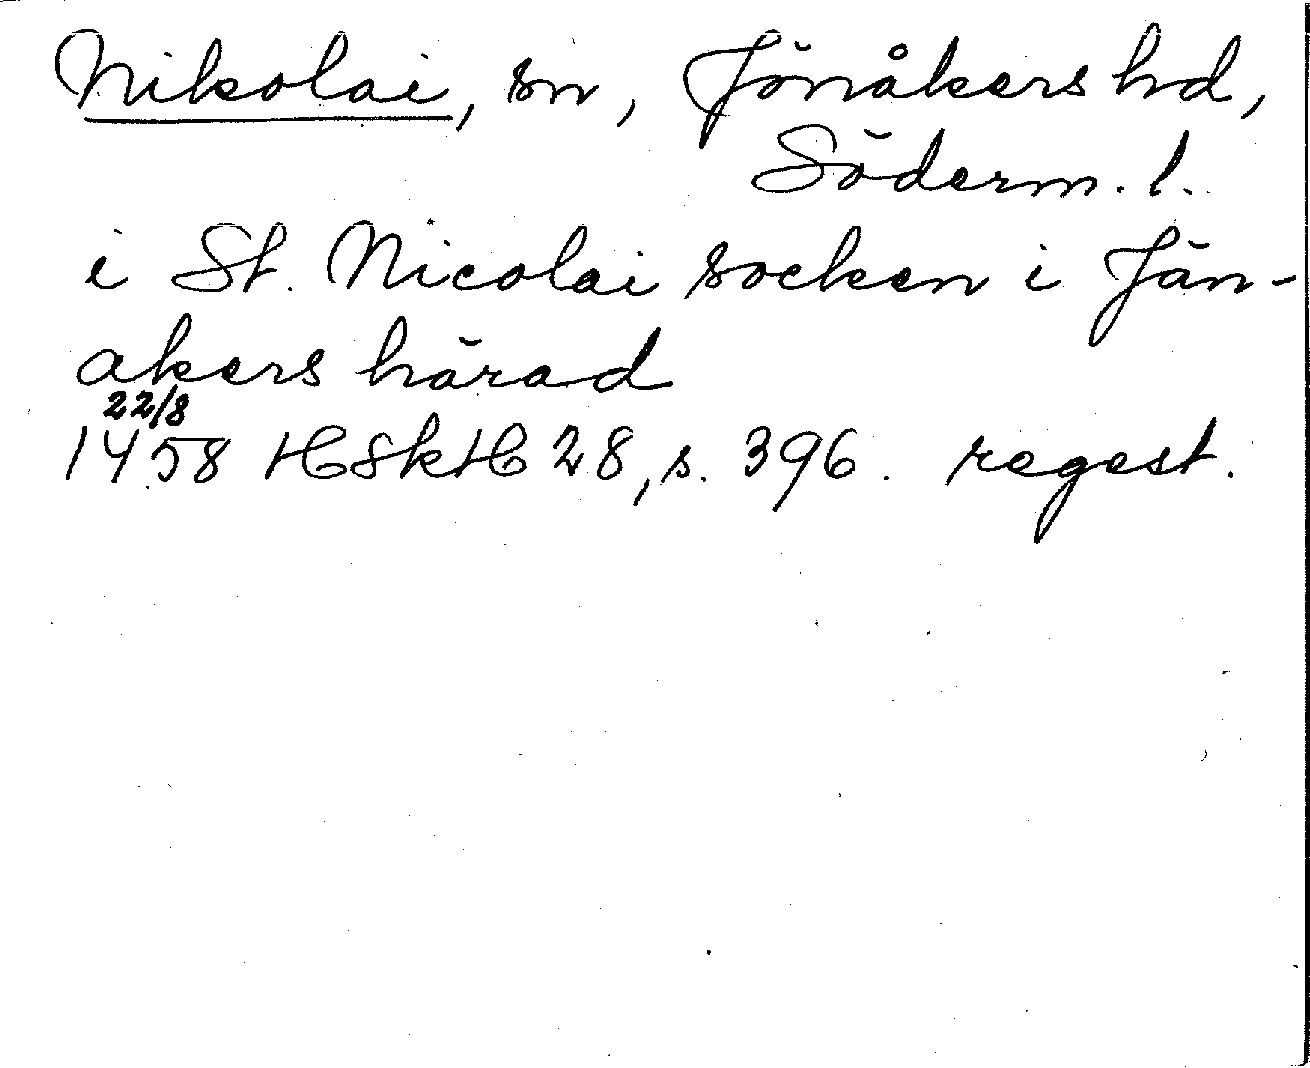 Nikolai, sn, Jönåkers hd,
Söderm. l.
i St. Nicolai socken i Jän-
akers härad
22/8
1458 HSkH 28, s. 396. regest.